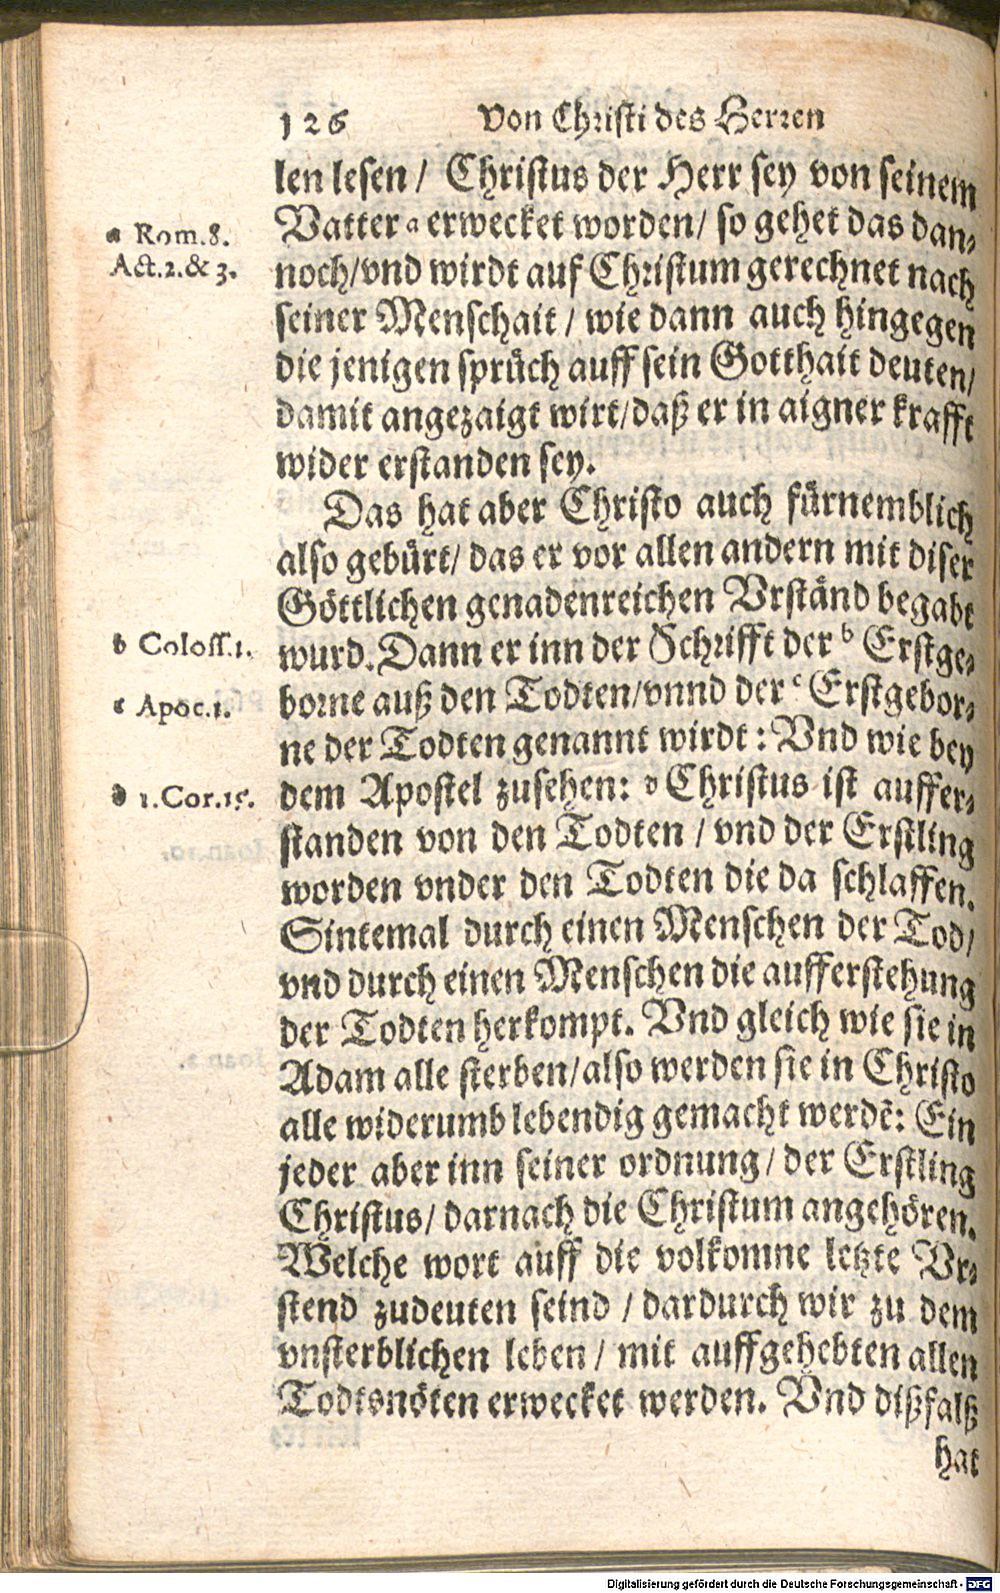 126 Von Christi des Herren
len lesen / Christus der Herr sey von seinem
Vatter a erwecket worden / so gehet das dan⸗
noch / vnd wirdt auf Christum gerechnet nach
seiner Menschait / wie dann auch hingegen
die jenigen sprüch auff sein Gotthait deuten /
damit angezaigt wirt / daß er in aigner krafft
wider erstanden sey.
a Rom.8.
Act.2.& 3.
Das hat aber Christo auch fürnemblich
also gebürt / das er vor allen andern mit diser
Göttlichen genadenreichen Vrständ begabt
wurd. Dann er inn der Schrifft der b Erstge⸗
borne auß den Todten / vnnd der c Erstgebor⸗
ne der Todten genannt wirdt : Vnd wie bey
dem Apostel zusehen: d Christus ist auffer⸗
standen von den Todten / vnd der Erstling
worden vnder den Todten die da schlaffen.
Sintemal durch einen Menschen der Tod /
vnd durch einen Menschen die aufferstehung
der Todten herkompt. Vnd gleich wie sie in
Adam alle sterben / also werden sie in Christo
alle widerumb lebendig gemacht werdē: Ein
jeder aber inn seiner ordnung / der Erstling
Christus / darnach die Christum angehören.
Welche wort auff die volkomne letzte Vr⸗
stend zudeuten seind / dardurch wir zu dem
vnsterblichen leben / mit auffgehebten allen
Todtsnöten erwecket werden. Vnd dißfalß
hat
b Coloss.1.
c Apoc.1.
d 1.Cor.15.
Digitalisierung gefördert durch die Deutsche Forschungsgemeinschaft - DFG